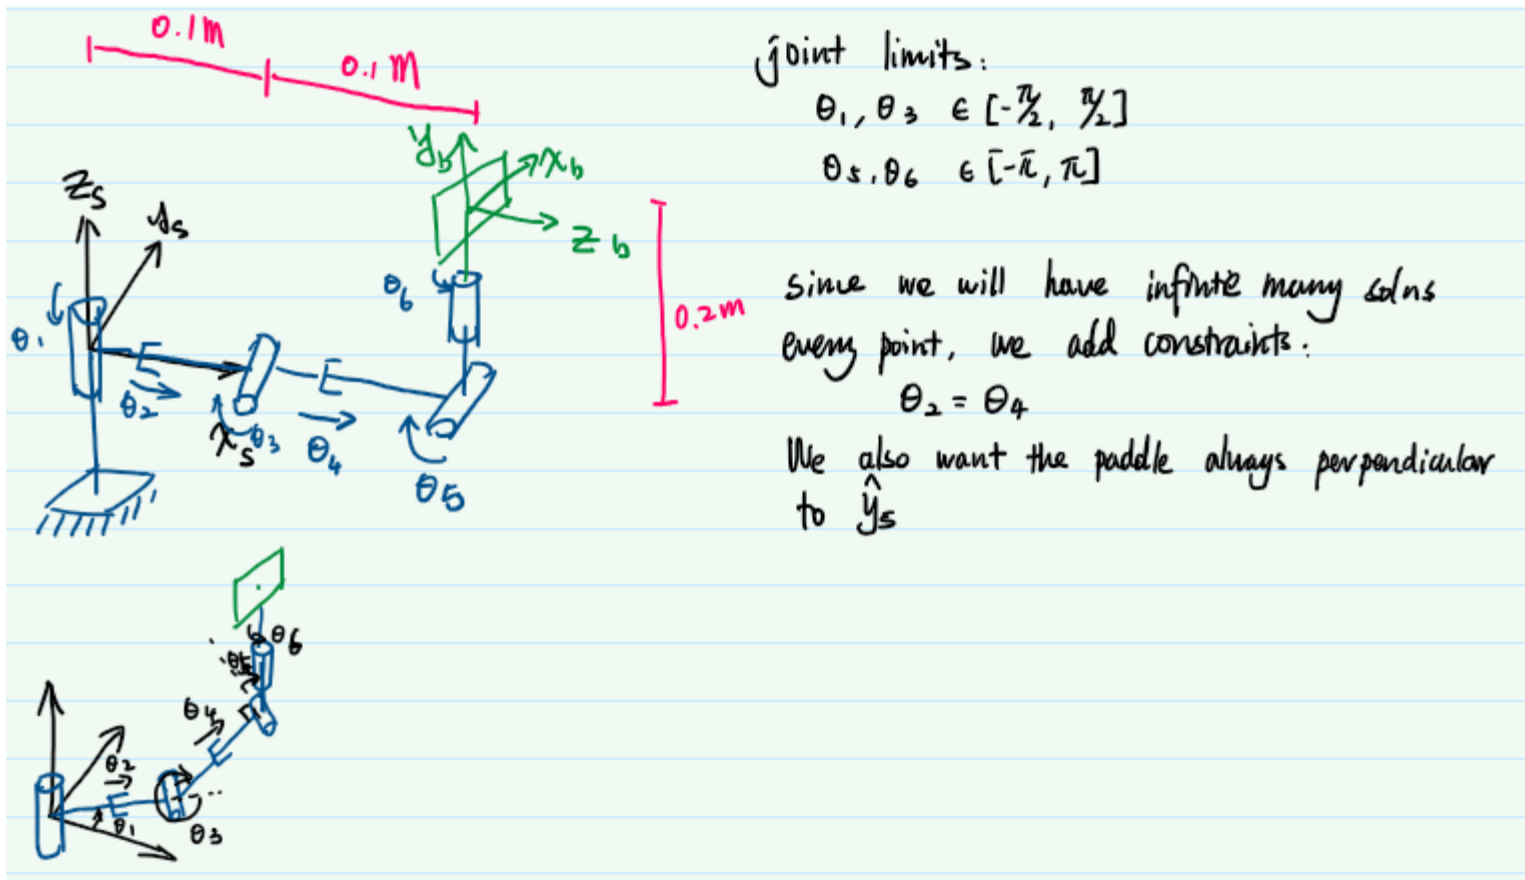 0.1M
0.1M
y_b
x_b
z_b
z_s
y_s
x_s
θ₁
θ₂
θ₃
θ₄
θ₅
θ₆
0.2m
joint limits:
θ₁, θ₃ ∈ [-π/2, π/2]
θ₅, θ₆ ∈ [-π, π]
since we will have infinite many solns
every point, we add constraints:
θ₂ = θ₄
We also want the paddle always perpendicular
to ŷₛ
θ₆
θ₅
θ₄
θ₂
θ₁
θ₃